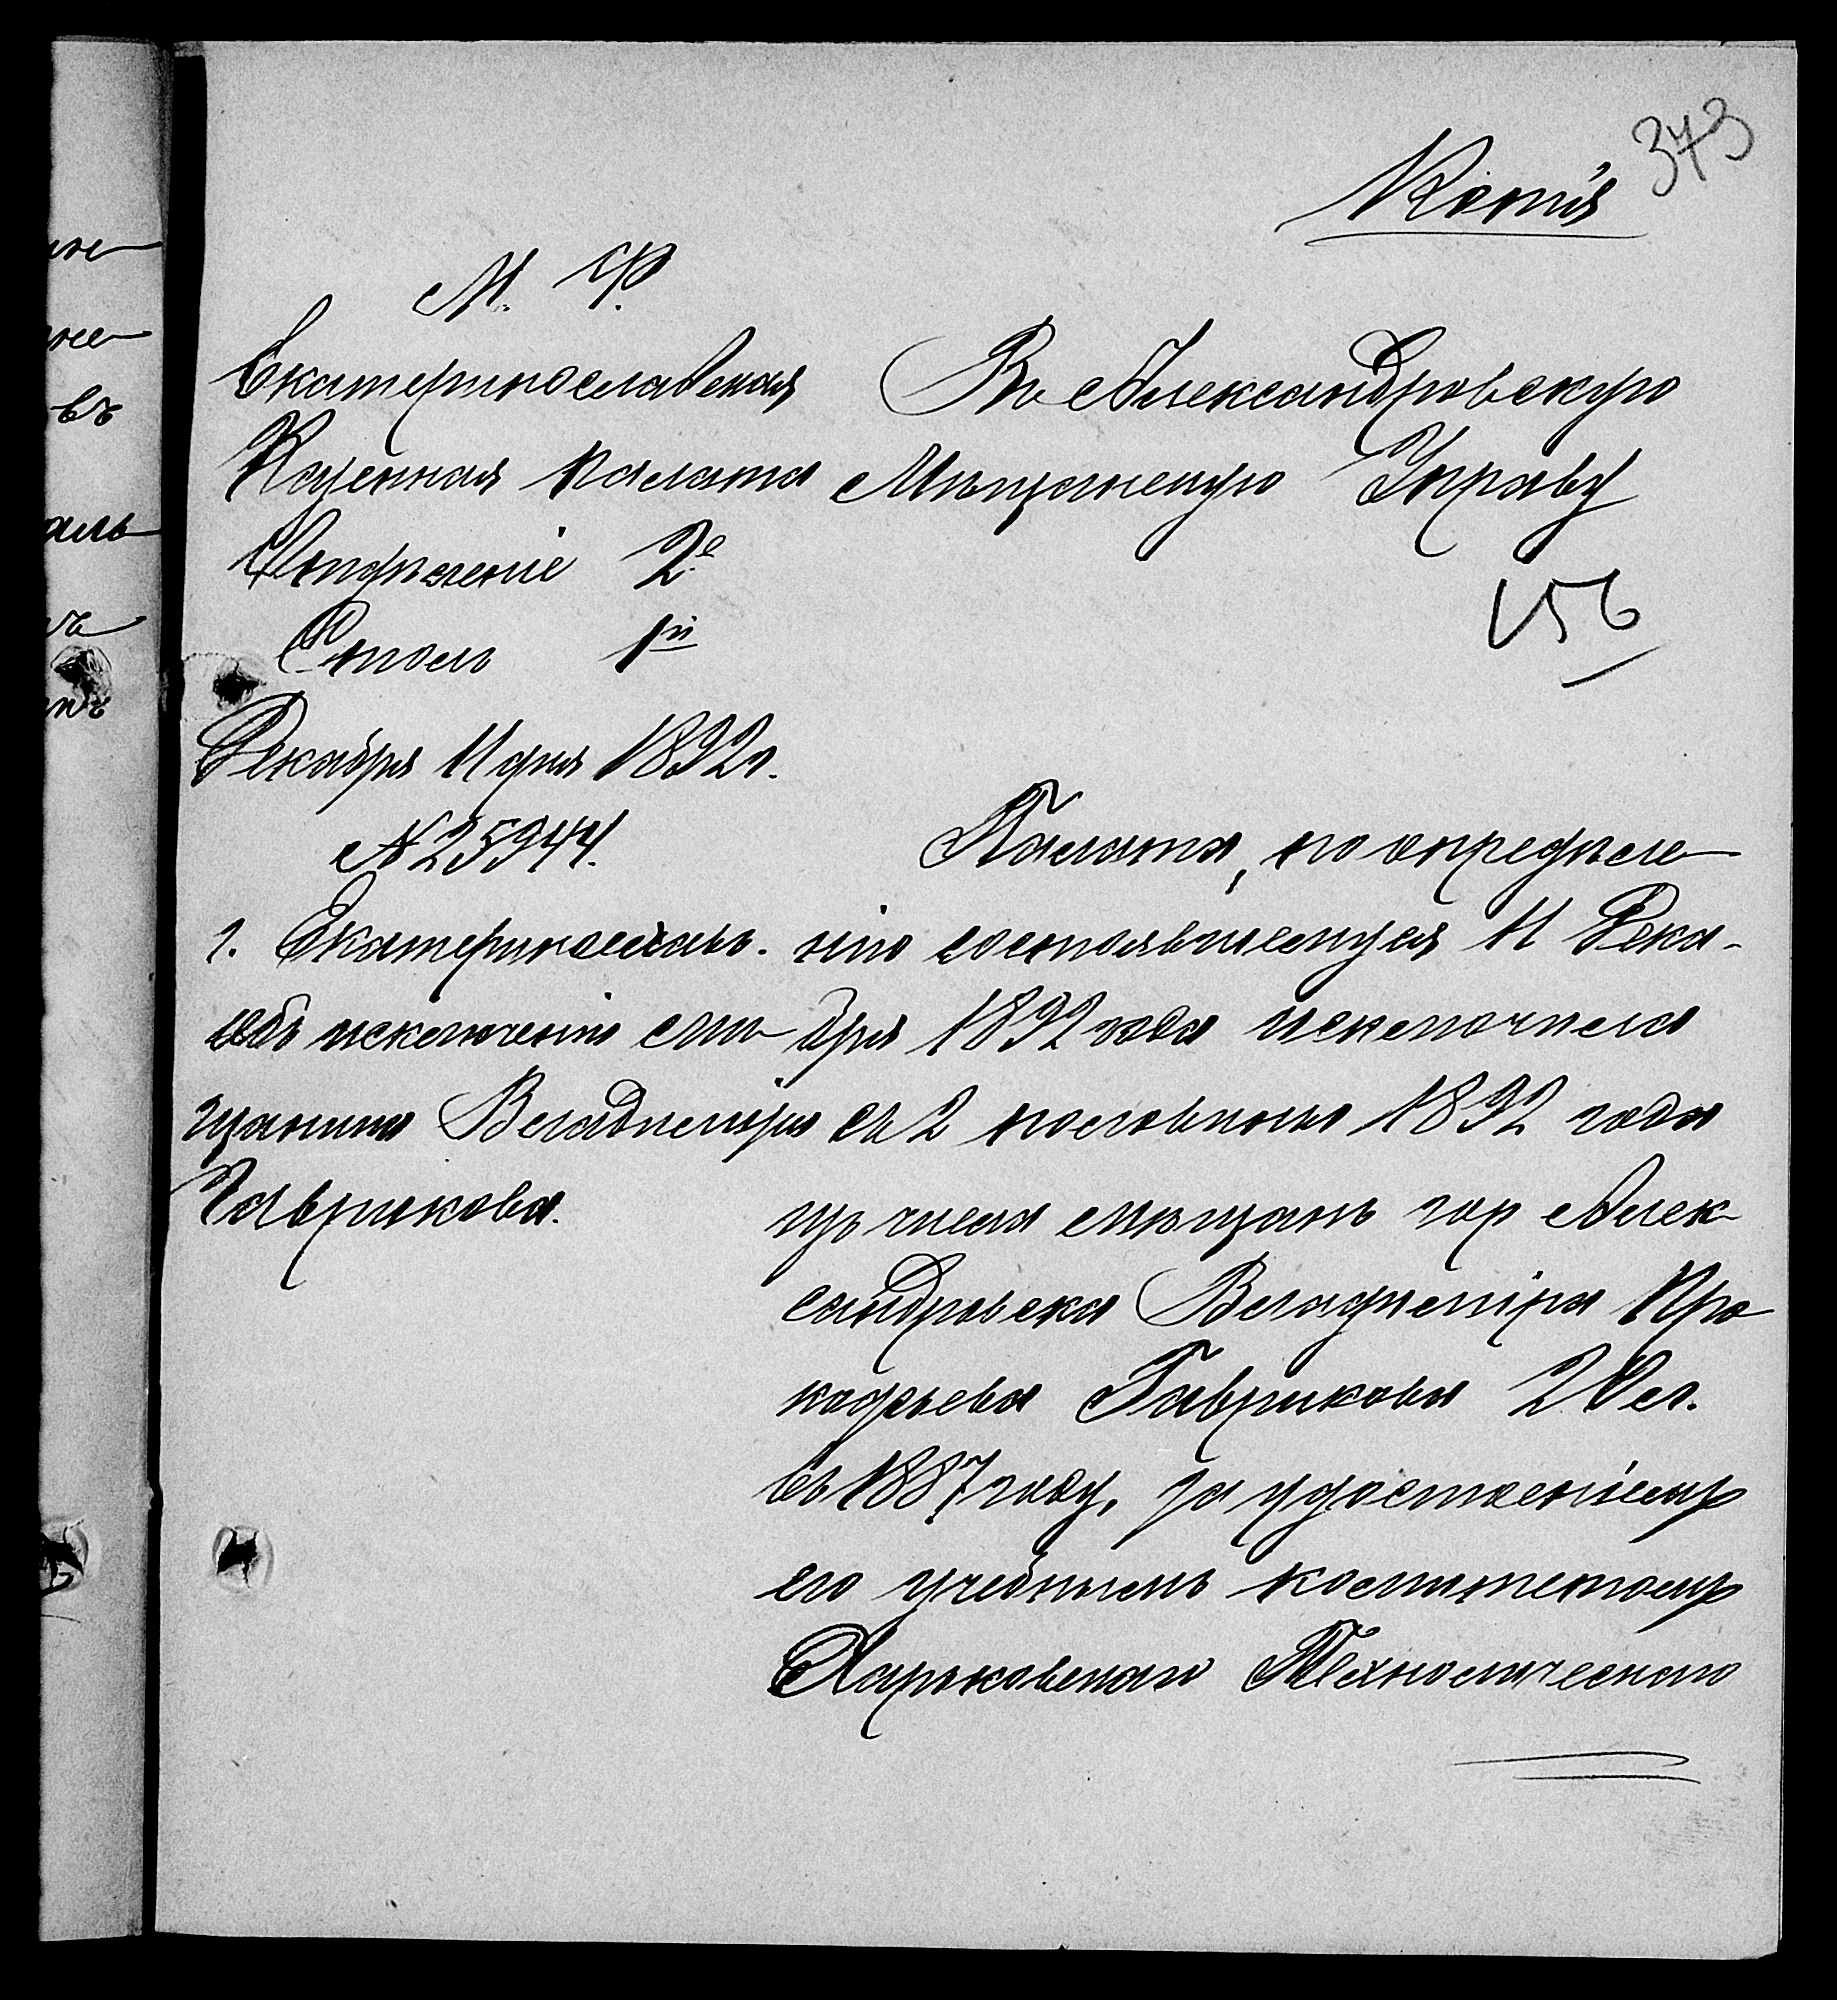 373
Копія
М. Ф.
Екатеринославская
Казенная палата
Отдѣленіе 2е
Столъ 1й
Декабря 11 дня 1892 г.
№ 25944.
г. Екатеринославъ.
объ исключеніи мѣ-
щанина Владиміра
Гаврикова.
Въ Александровскую
Мѣщанскую Управу
156
Палата, по опредѣле-
нію состоявшемуся 11 Дека-
бря 1892 года исключила
съ 2 половины 1892 года
изъ числа мѣщанъ гор Алек-
сандровска Владиміра Про-
кофьева Гаврикова 20 л.
въ 1887 году, за удостоеніемъ
его учебнымъ комитетомъ
Харьковскаго Технологическаго